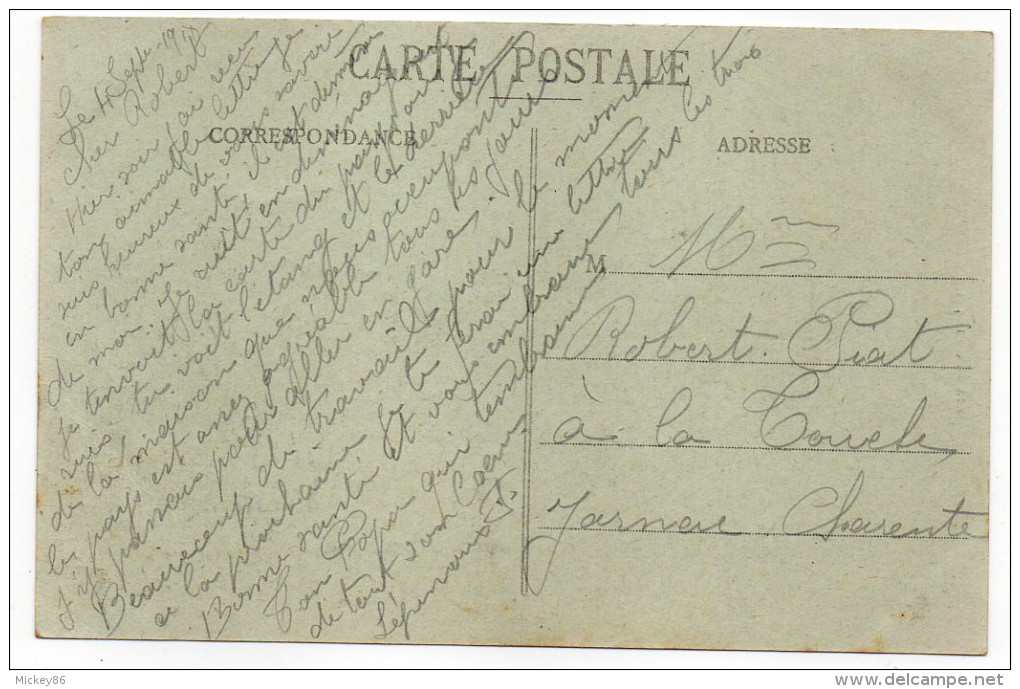 CARTE POSTALE
CORRESPONDANCE
ADRESSE
Le 4 Sept. 19
Cher Robert
Hier soir j'ai reçu
ton aimable lettre je
suis heureux de vous savoir
en bonne santé il est de même
de moi. Je suis en déménage
je t'envoit la carte du pays
tu voit l'étang et le derrière
de la maison que nous occupont
le pays est assez agréable tous les jours
pour aller en gare
Beaucoup de travail pour le moment
a la prochaine je te ferai une lettre
Bonne santé et vous embrasse tous les trois
Ton Papa qui t'embrasse
de tout son Coeur
M Mme
Robert. Piat
à la Touche
Jarnac Charente
Mickey86
delcampe.net